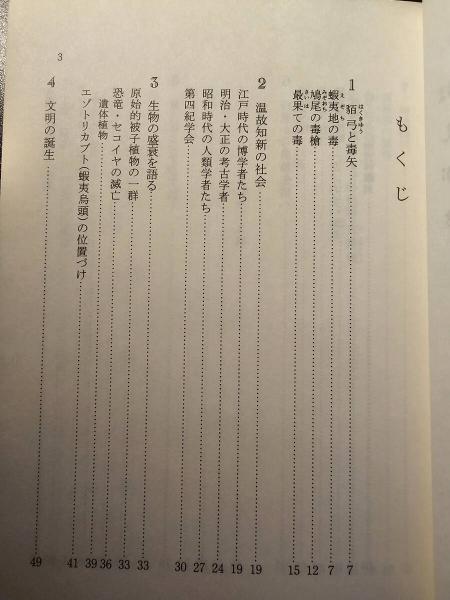 もくじ
1 貊弓と毒矢……7
はくきゆう
蝦夷地の毒……7
えぞち
鳩尾の毒槍……12
みぞおち
最果ての毒……15
さいは
2 温故知新の社会……19
江戸時代の博学者たち……19
明治・大正の考古学者……24
昭和時代の人類学者たち……27
第四紀学会……30
3 生物の盛衰を語る……33
原始的被子植物の一群……33
恐竜・セコイヤの滅亡……36
遺体植物……39
エゾトリカブト(蝦夷烏頭)の位置づけ……41
4 文明の誕生……49
3